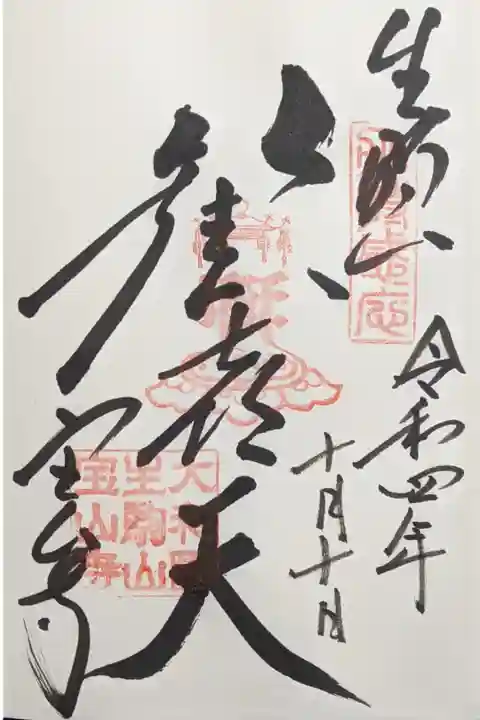 生駒山
令和四年
十月十日
歡喜天
宝山寺
大和国
生駒山
宝山寺